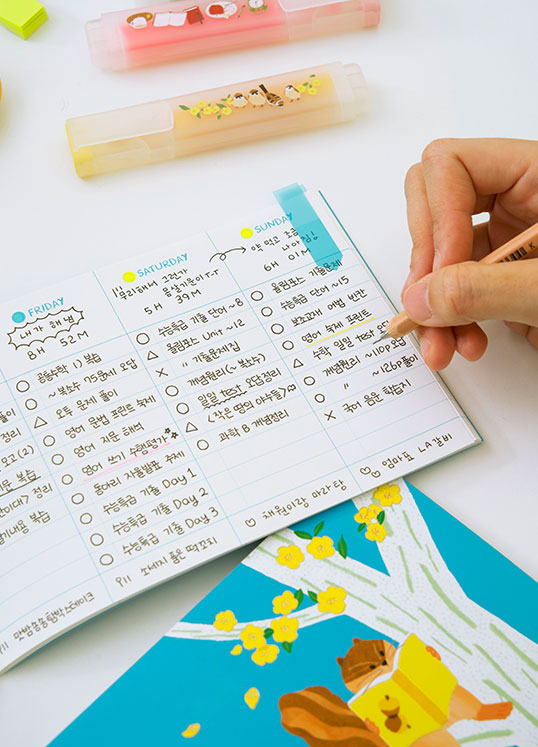 FRIDAY
내가 해냄
8H 52M
공통수학 1) 복습
~ 복소수 기초문제 오답
오독 문제 풀이
영어 문법 프린트 숙제
영어 지문 해석
영어 쓰기 수행평가
동아리 자율발표 주제
수능특급 기출 Day 1
수능특급 기출 Day 2
수능특급 기출 Day 3
P!! 소세지 품은 떡꼬치
SATURDAY
무리해서 그런가
몸살기운이 T.T
5H 39M
수능특급 기출 단어 ~8
올림포스 Unit ~12
〃 기출문제집
개념원리 (~ 복소수)
일일 test 오답정리
<작은 땅의 야수들>
과학 8 개념정리
♡ 채원이랑 마라탕
SUNDAY
약 먹고 조금
나아짐!
6H 01M
올림포스 기출문제
수능특급 단어 ~15
보고서 예범 반안
영어 숙제 프린트
수학 일일 test 오답
개념원리 ~110p 오답
〃 ~126p 풀이
국어 음운 학습지
♡ 엄마표 LA갈비
풀이
정리
모고 (2)
프린트 복습
정리
필기내용 복습
K